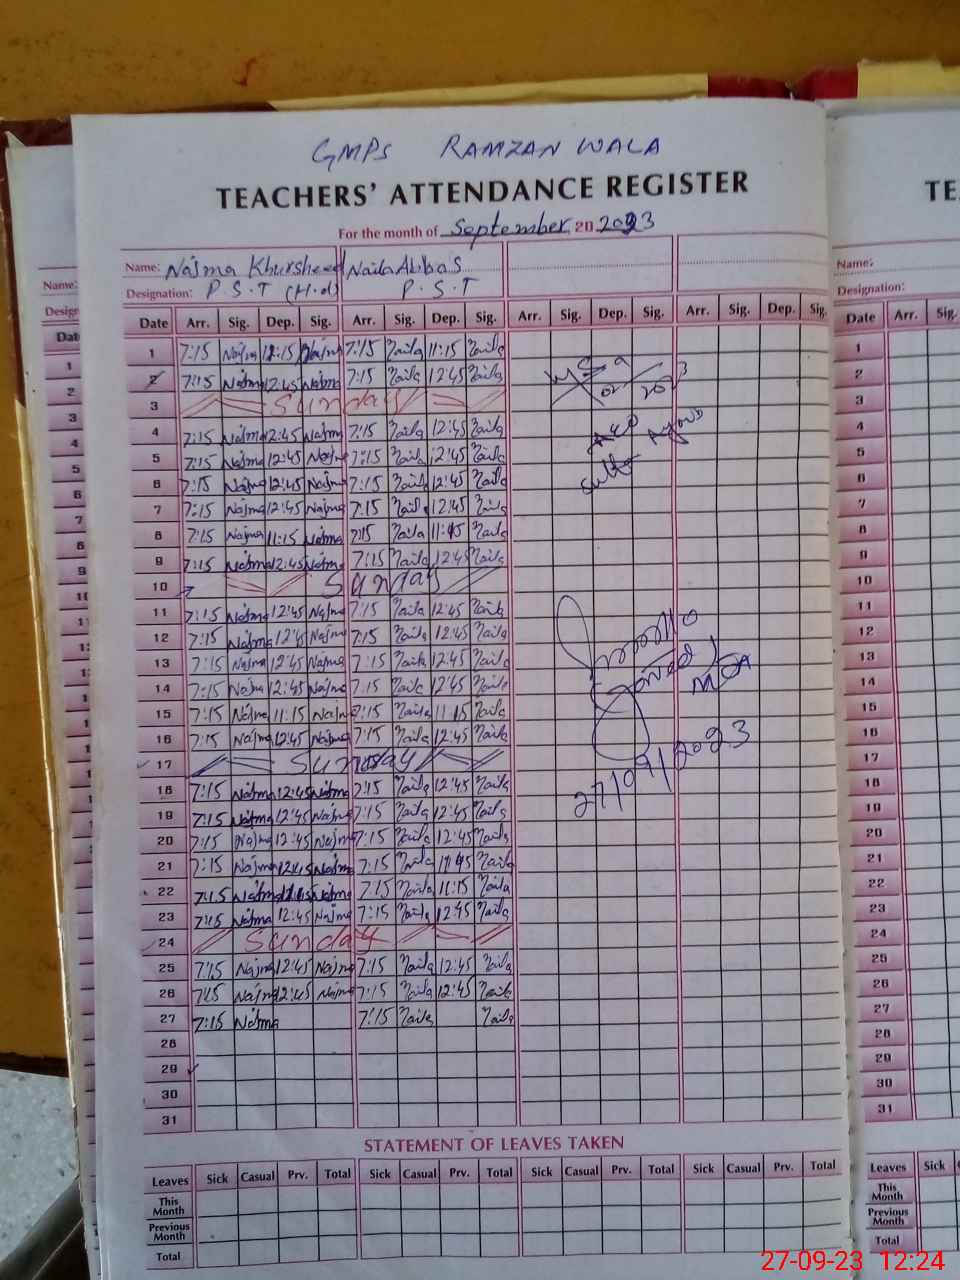 GMPS RAMZAN WALA
TEACHERS' ATTENDANCE REGISTER
For the month of September 20 2023
Name: Najma Khursheed Naila Abbas
Designation: P.S.T (H.d) P.S.T
Date Arr. Sig. Dep. Sig. Arr. Sig. Dep. Sig. Arr. Sig. Dep. Sig. Arr. Sig. Dep. Sig.
1 7:15 Najma 11:15 Najma 7:15 Naila 11:15 Naila
2 7:15 Najma 12:45 Najma 7:15 Naila 12:45 Naila
3 Sunday
4 7:15 Najma 12:45 Najma 7:15 Naila 12:45 Naila
5 7:15 Najma 12:45 Najma 7:15 Naila 12:45 Naila
6 7:15 Najma 12:45 Najma 7:15 Naila 12:45 Naila
7 7:15 Najma 12:45 Najma 7:15 Naila 12:45 Naila
8 7:15 Najma 11:15 Najma 7:15 Naila 11:15 Naila
9 7:15 Najma 12:45 Najma 7:15 Naila 12:45 Naila
10 Sunday
11 7:15 Najma 12:45 Najma 7:15 Naila 12:45 Naila
12 7:15 Najma 12:45 Najma 7:15 Naila 12:45 Naila
13 7:15 Najma 12:45 Najma 7:15 Naila 12:45 Naila
14 7:15 Najma 12:45 Najma 7:15 Naila 12:45 Naila
15 7:15 Najma 11:15 Najma 7:15 Naila 11:15 Naila
16 7:15 Najma 12:45 Najma 7:15 Naila 12:45 Naila
17 Sunday
18 7:15 Najma 12:45 Najma 7:15 Naila 12:45 Naila
19 7:15 Najma 12:45 Najma 7:15 Naila 12:45 Naila
20 7:15 Najma 12:45 Najma 7:15 Naila 12:45 Naila
21 7:15 Najma 12:45 Najma 7:15 Naila Naila
22 7:15 Najma Najma 7:15 Naila 11:15 Naila
23 7:15 Najma 12:45 Najma 7:15 Naila 12:45 Naila
24 Sunday
25 7:15 Najma 12:45 Najma 7:15 Naila 12:45 Naila
26 7:15 Najma 12:45 Najma 7:15 Naila 12:45 Naila
27 7:15 Najma 7:15 Naila Naila
28
29
30
31
AEO
Javed
MEA
27/09/2023
STATEMENT OF LEAVES TAKEN
Leaves Sick Casual Prv. Total Sick Casual Prv. Total Sick Casual Prv. Total Sick Casual Prv. Total
This Month
Previous Month
Total
TE
Name:
Designation:
Date Arr. Sig.
1
2
3
4
5
6
7
8
9
10
11
12
13
14
15
16
17
18
19
20
21
22
23
24
25
26
27
28
29
30
31
Leaves Sick
This Month
Previous Month
Total
27-09-23 12:24